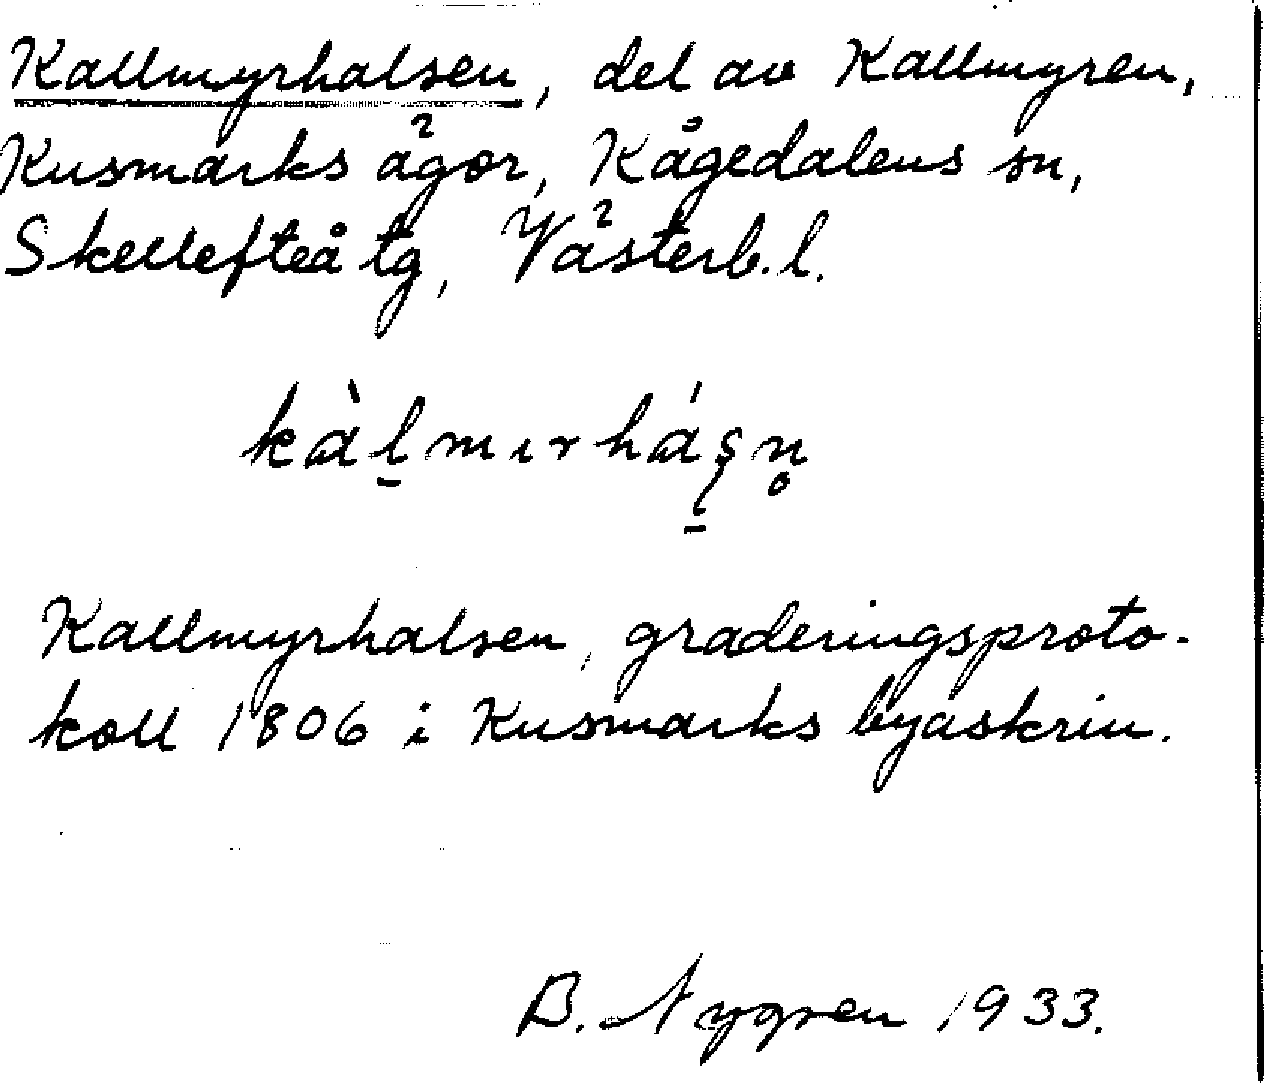 Kallmyrhalsen, del av Kallmyren,
Kusmarks ägor, Kågedalens sn,
Skellefteå tg, Västerb. l.
kàl̠mırháş̠n̥
Kallmyrhalsen, graderingsproto-
koll 1806 i Kusmarks byaskrin.
B. Nygren 1933.